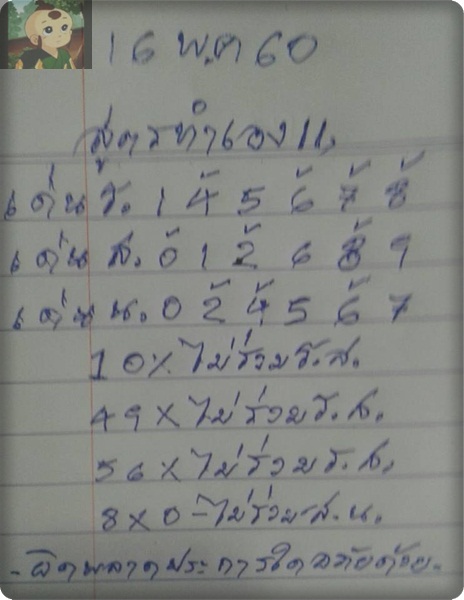 16 พ.ค 60
สูตรทำเอง 11,
เด่น ร. 1 4้ 5 6้ 7้ 8้
เด่น ส. 0้ 1 2้ 6 8้ 9
เด่น น. 0 2้ 4้ 5 6้ 7
10 X ไม่ร่วม ร.ส.
49 X ไม่ร่วม ร.ส.
56 X ไม่ร่วม ร.ส.
8 X 0 - ไม่ร่วม ส.น.
- ผิดพลาดประการใดอภัยด้วย -